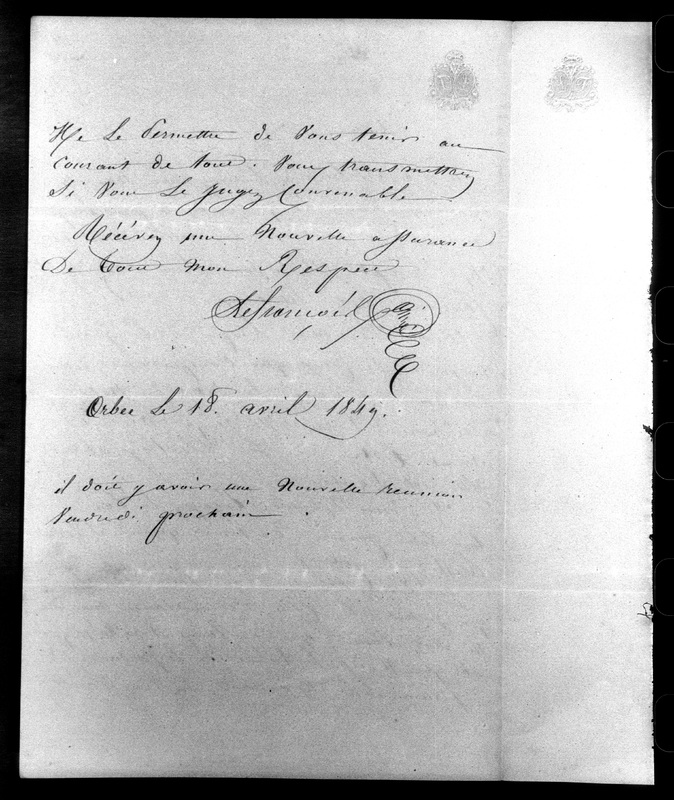 Me le permettre de vous tenir au
courant de tout. Vous transmettrez
Si vous le jugez Convenable
Récévez une Nouvelle assurance
De tout mon Respect
Orbec le 18. avril 1849.
il doit y avoir une Nouvelle reunion
Vendredi prochain.